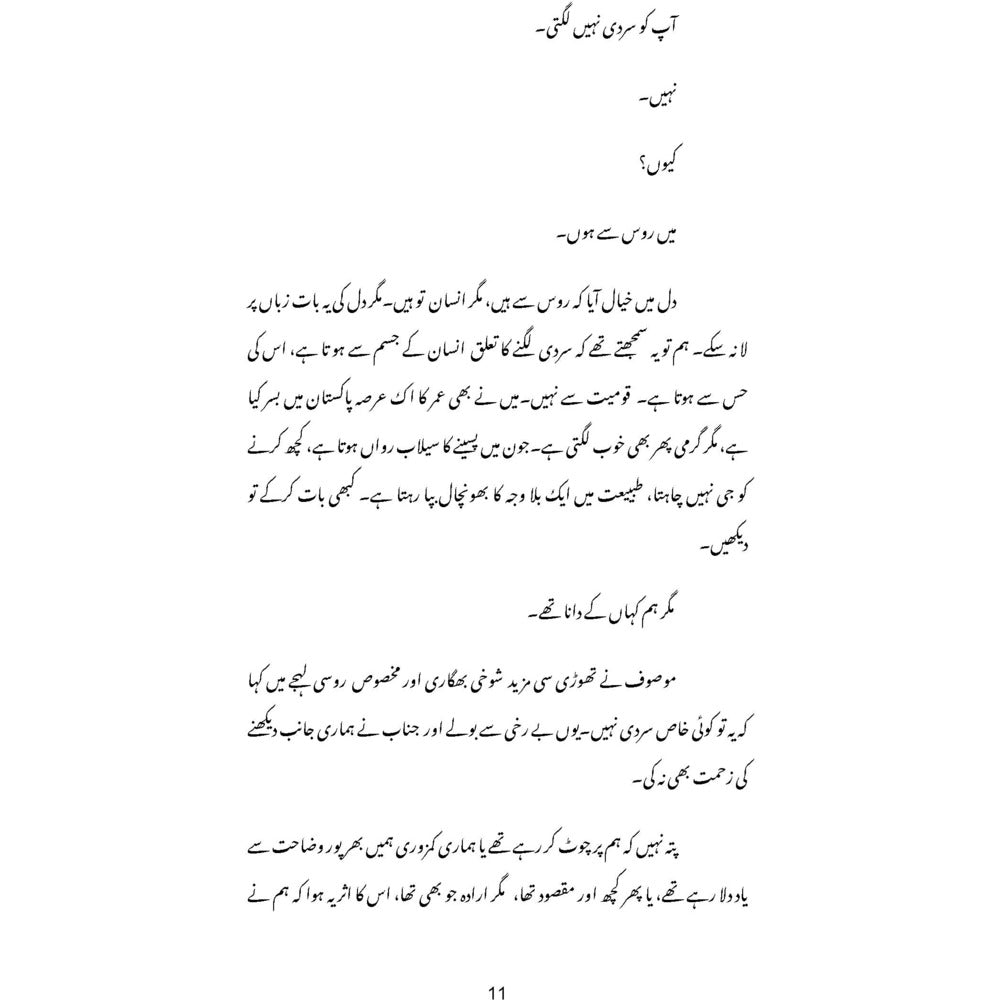 آپ کو سردی نہیں لگتی۔
نہیں۔
کیوں؟
میں روس سے ہوں۔
دل میں خیال آیا کہ روس سے ہیں، مگر انسان تو ہیں۔مگر دل کی یہ بات زباں پر
لا نہ سکے۔ ہم تو یہ سمجھتے تھے کہ سردی لگنے کا تعلق انسان کے جسم سے ہوتا ہے، اس کی
حس سے ہوتا ہے۔ قومیت سے نہیں۔میں نے بھی عمر کا اک عرصہ پاکستان میں بسر کیا
ہے، مگر گرمی پھر بھی خوب لگتی ہے۔جون میں پسینے کا سیلاب رواں ہوتا ہے، کچھ کرنے
کو جی نہیں چاہتا، طبیعت میں ایک بلا وجہ کا بھونچال بپا رہتا ہے۔ کبھی بات کرکے تو
دیکھیں۔
مگر ہم کہاں کے دانا تھے۔
موصوف نے تھوڑی سی مزید شوخی بھگاری اور مخصوص روسی لہجے میں کہا
کہ یہ تو کوئی خاص سردی نہیں۔یوں بے رخی سے بولے اور جناب نے ہماری جانب دیکھنے
کی زحمت بھی نہ کی۔
پتہ نہیں کہ ہم پر چوٹ کر رہے تھے یا ہماری کمزوری ہمیں بھرپور وضاحت سے
یاد دلا رہے تھے، یا پھر کچھ اور مقصود تھا، مگر ارادہ جو بھی تھا، اس کا اثر یہ ہوا کہ ہم نے
11